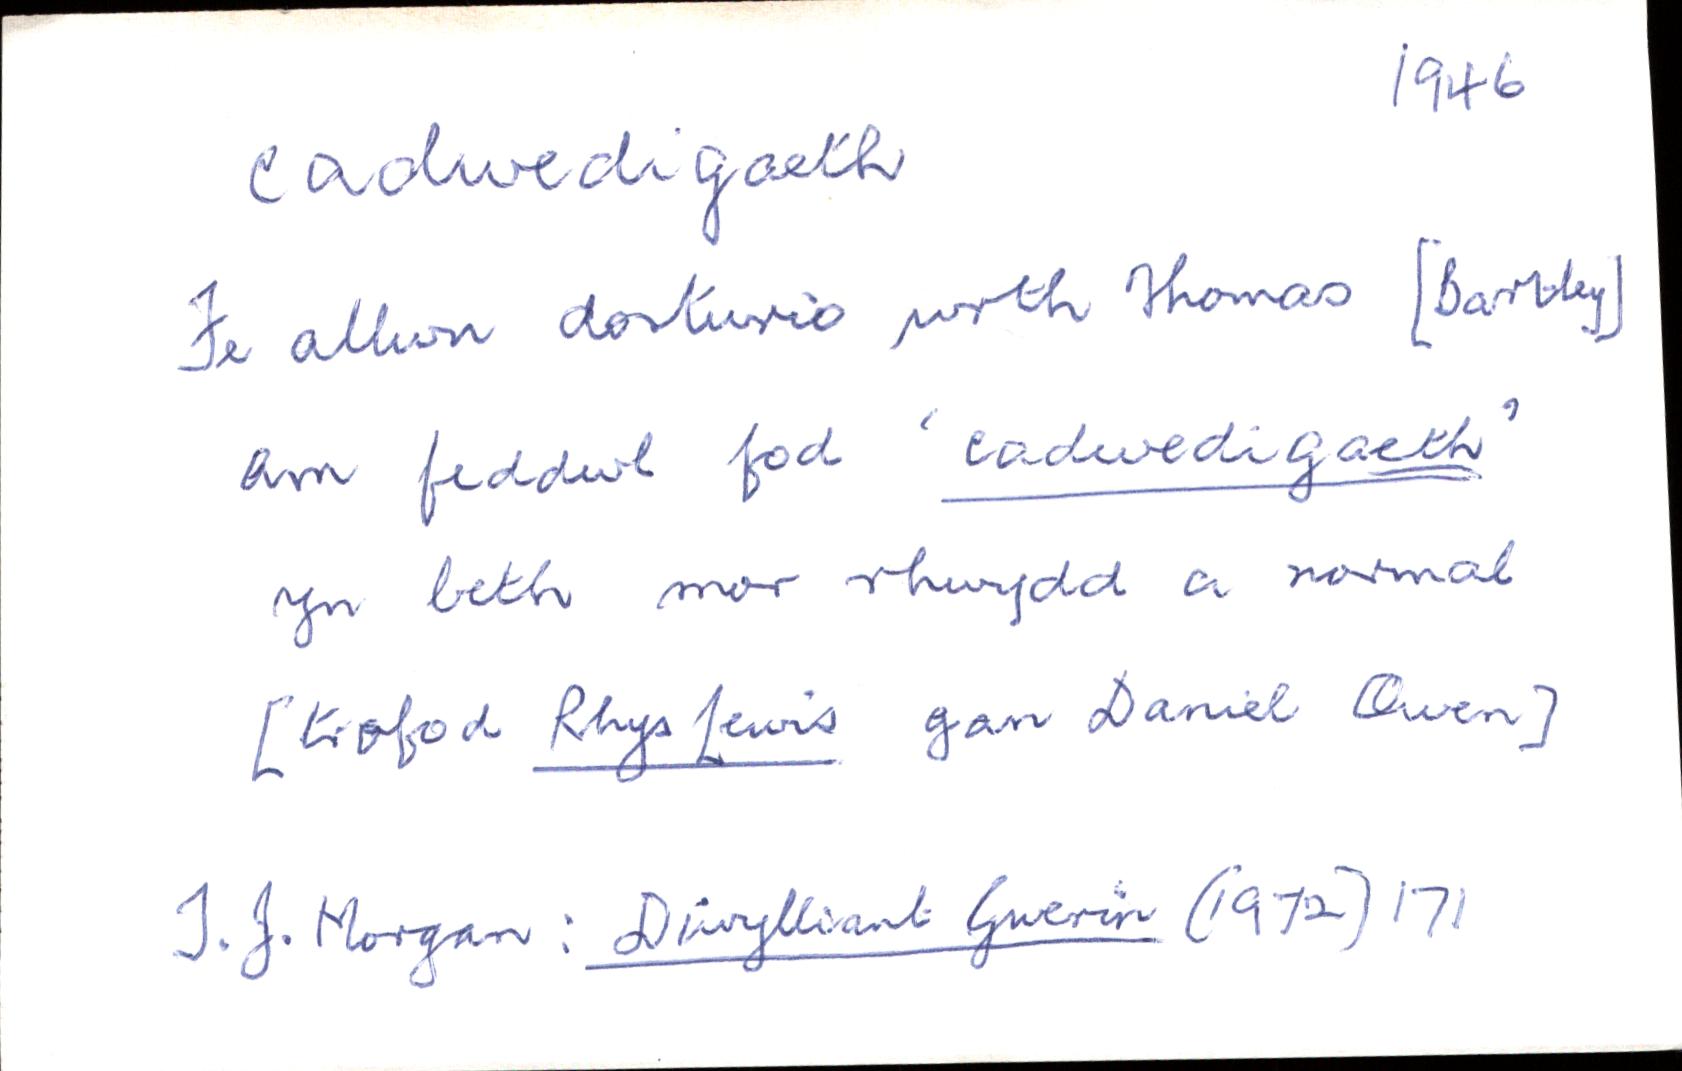 1946
cadwedigaeth
Fe allwn dosturio wrth Thomas [Bartley]
am feddwl fod ‘cadwedigaeth’
yn beth mor rhwydd a normal
[trafod Rhys Lewis gan Daniel Owen]
T. J. Morgan: Diwylliant Gwerin (1972) 171